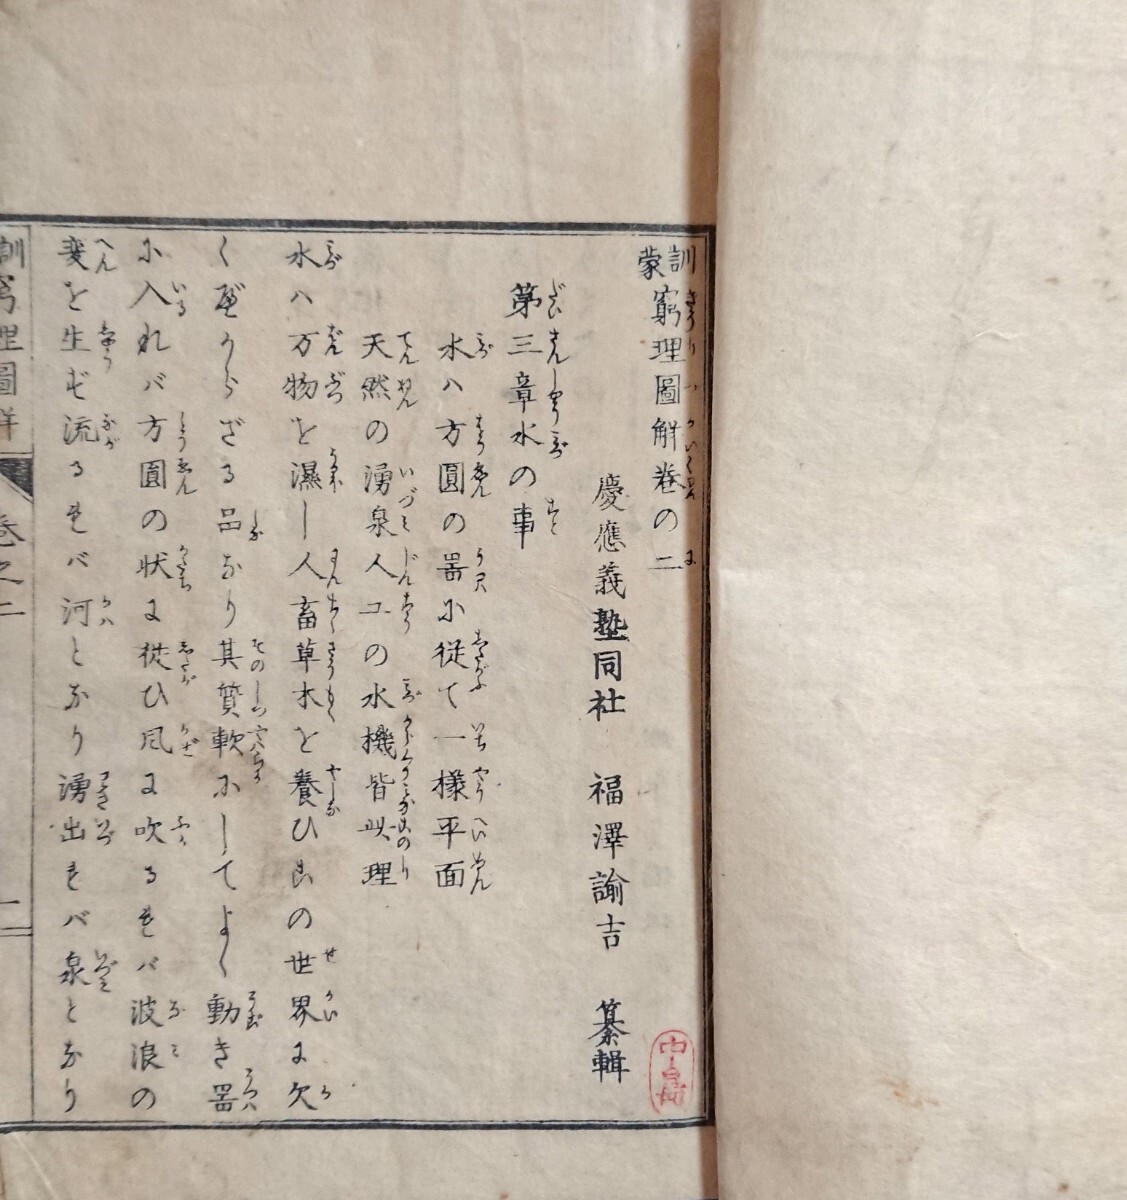 訓蒙窮理圖解卷の二
慶應義塾同社 福澤諭吉 纂輯
第三章水の事
水ハ方圓の器に従て一様平面
天然の湧泉人工の水機皆此理
水ハ万物を濕し人畜草木を養ひ此の世界に欠
くべからざる品なり其質軟にしてよく動き器
に入れバ方圓の状に従ひ風に吹るればバ波浪の
変を生ず流るれバ河となり湧出れバ泉となり